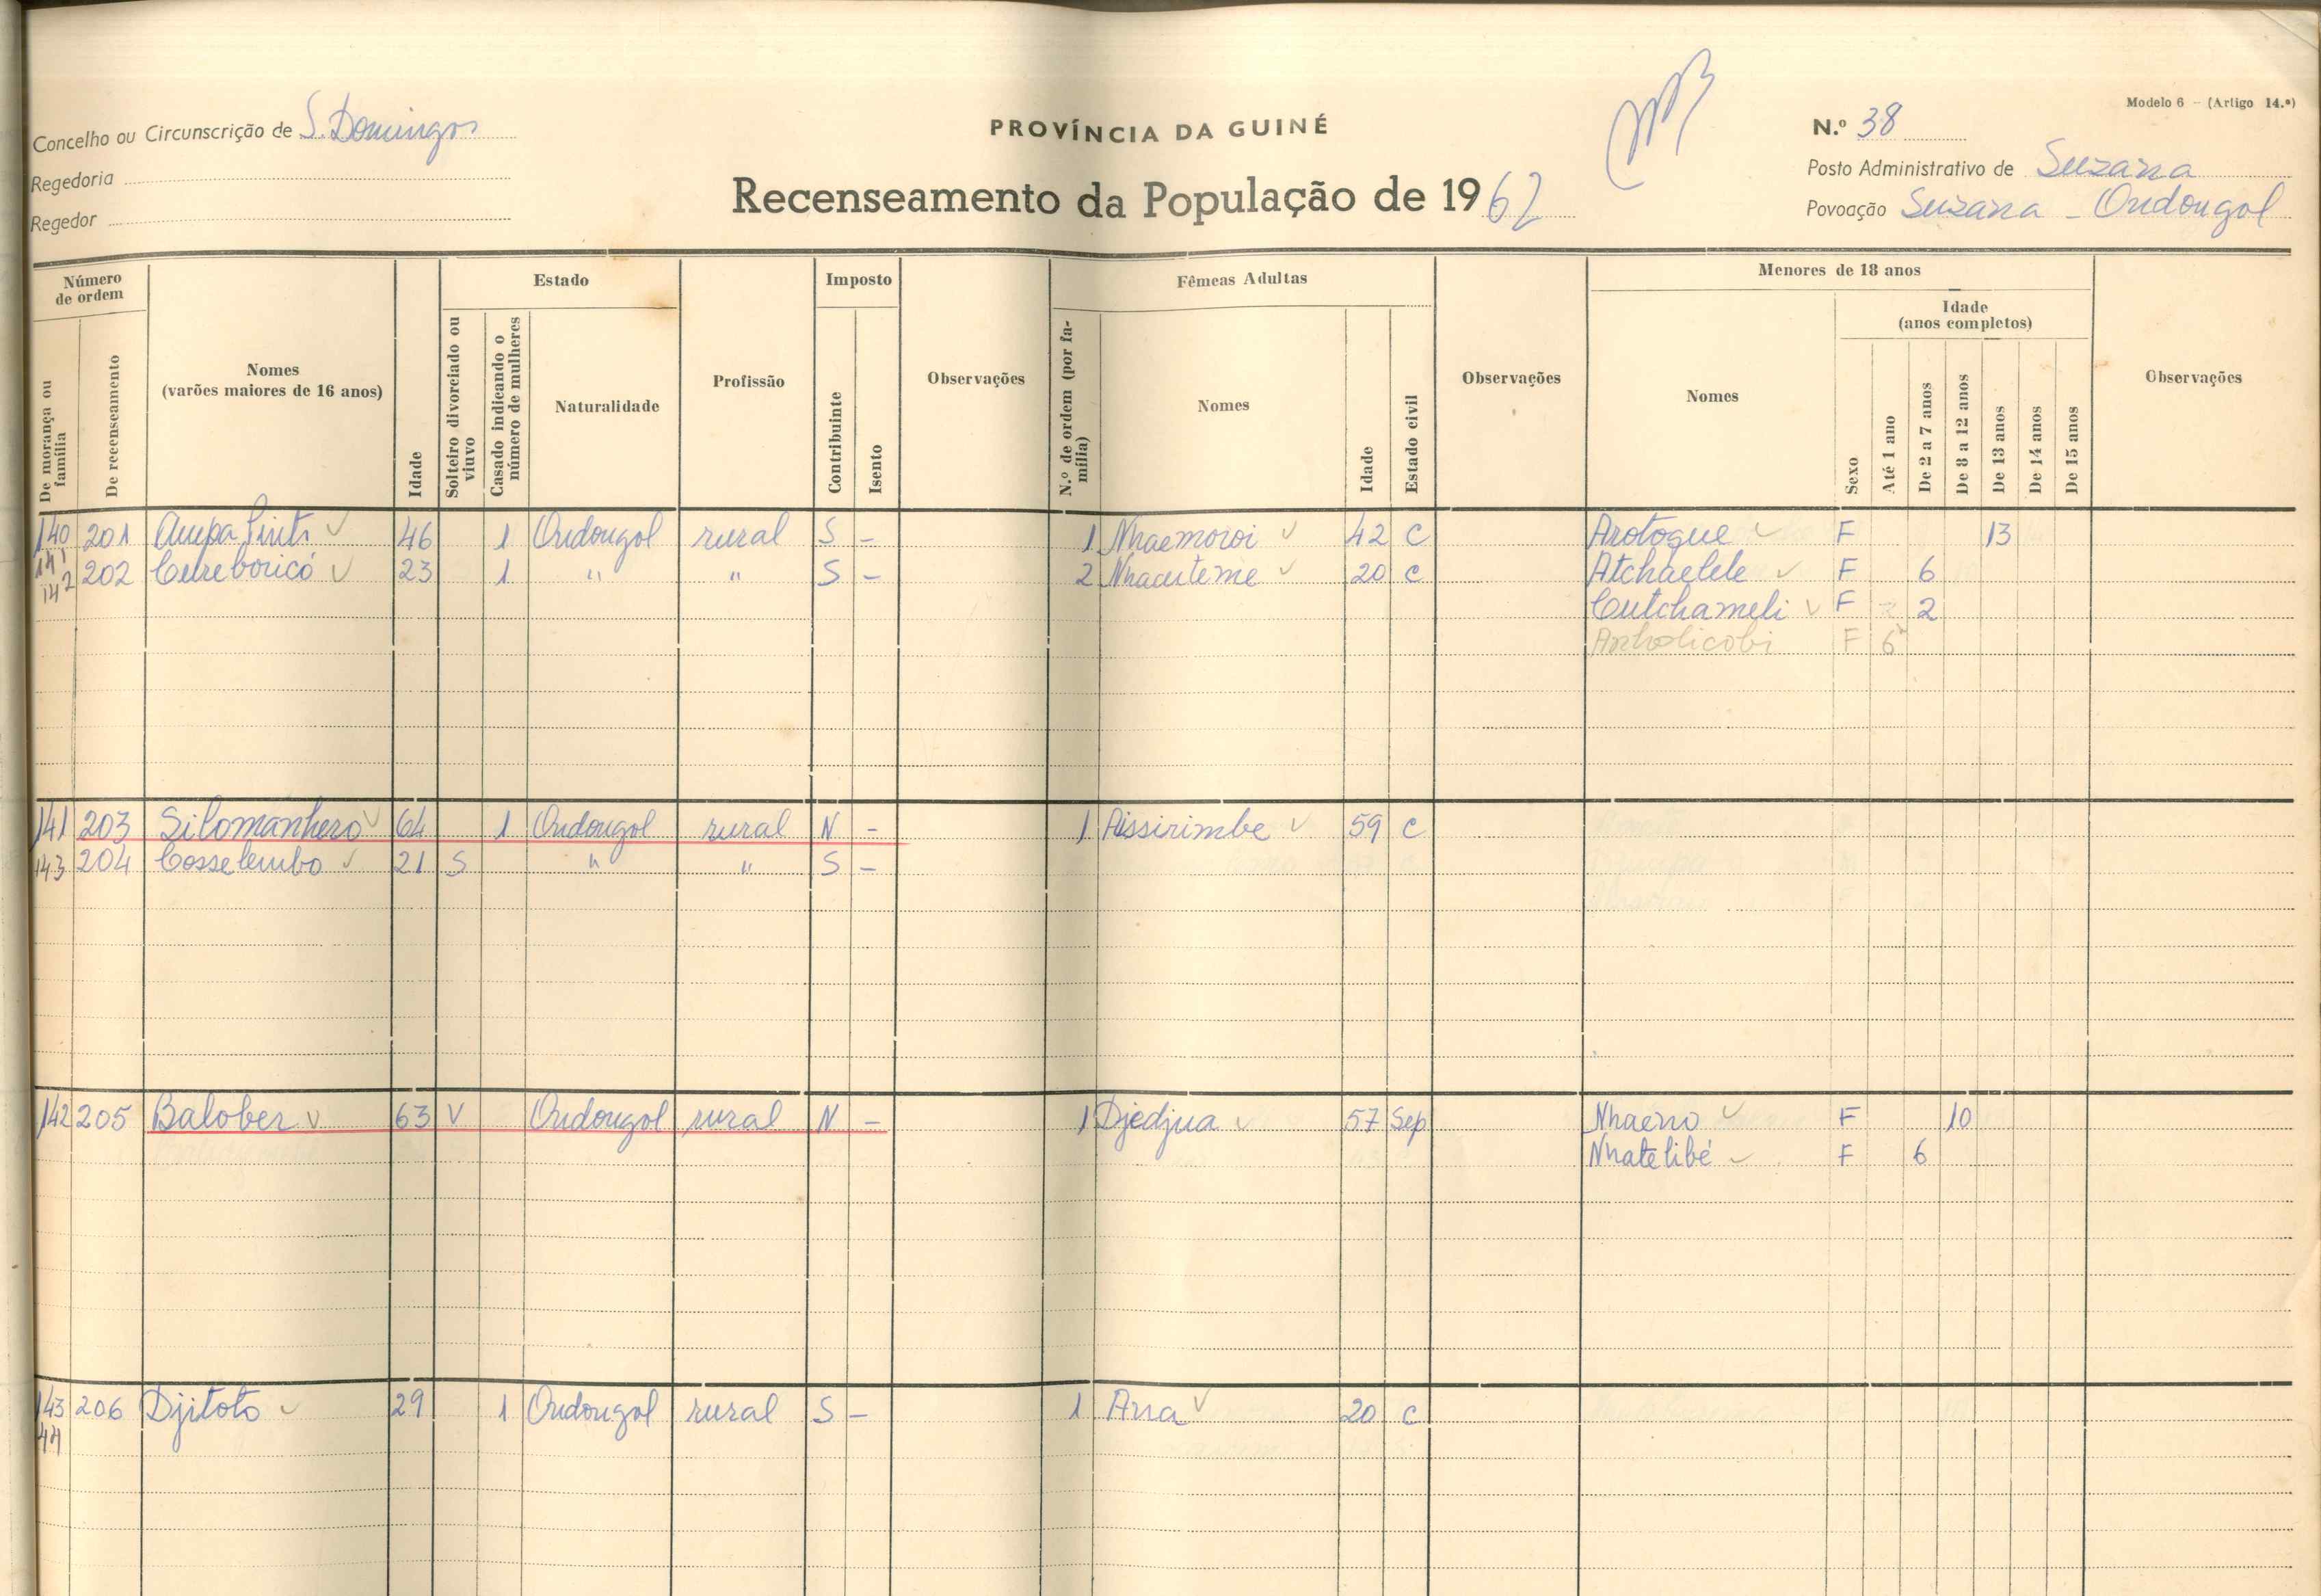 Modelo 6 - (Artigo 14.º)
Concelho ou Circunscrição de S. Domingos
Regedoria
Regedor
PROVÍNCIA DA GUINÉ
Recenseamento da População de 1962
N.º 38
Posto Administrativo de Suzana
Povoação Suzana - Ondongol
Número de ordem
De morança ou família
De recenseamento
Nomes
(varões maiores de 16 anos)
Idade
Estado
Solteiro divorciado ou viuvo
Casado indicando o número de mulheres
Naturalidade
Profissão
Imposto
Contribuinte
Isento
Observações
Fêmeas Adultas
N.º de ordem (por família)
Nomes
Idade
Estado civil
Observações
Menores de 18 anos
Nomes
Sexo
Idade
(anos completos)
Até 1 ano
De 2 a 7 anos
De 8 a 12 anos
De 13 anos
De 14 anos
De 15 anos
Observações
140 201 46 1 Ondongol rural S - 1 Nhaemoroi 42 C Arotogue F 13
141
142 202 23 1 " " S - 2 Nhacuteme 20 C Atchaelele F 6
Cutchameli F 2
F 6
141 203 Silomanhero 64 1 Ondongol rural N - 1 Aissirimbe 59 C
143 204 Cosselembo 21 S " " S -
142 205 Balober 63 V Ondongol rural N - 1 Djedjua 57 Sep Nhaeno F 10
Nhatelibé F 6
143 206 Djitoto 29 1 Ondongol rural S - 1 Ana 20 C
44